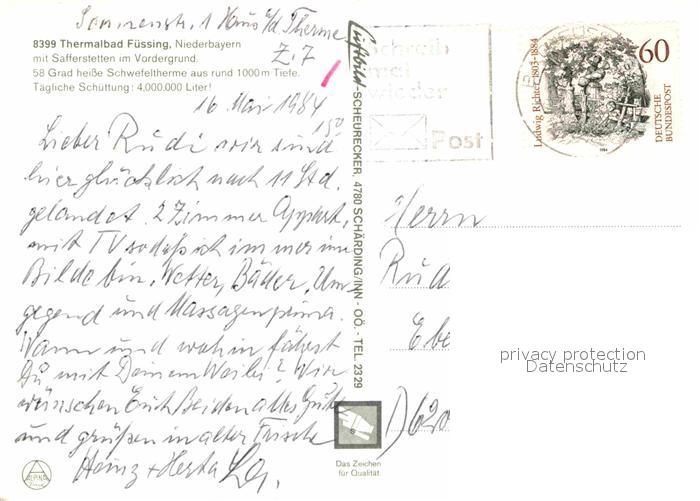 Sonnenstr. 1 Haus a/d Therme
Z. 7
8399 Thermalbad Füssing, Niederbayern
mit Safferstetten im Vordergrund.
58 Grad heiße Schwefeltherme aus rund 1000 m Tiefe.
Tägliche Schüttung: 4,000.000 Liter!
16. Mai 1984
150
Lieber Rudi wir sind
hier glücklich nach 11 Std.
gelandet. 2 Zimmer Appart.
mit TV sodaß ich immer im
Bilde bin. Wetter, Bäder, Um-
gegend und Massagen prima.
Wann und wohin fährst
Du mit Deinem Weibi? Wir
wünschen Euch Beiden alles Gute
und grüßen in alter Frische
Heinz + Herta
Luftbild-SCHEURECKER, 4780 SCHÄRDING/INN - OÖ. - TEL. 2329
Schreib
mal
wieder
Post
Ludwig Richter 1803-1884
60
DEUTSCHE
BUNDESPOST
1984
Herrn
Rud
Ebe
D 620
privacy protection
Datenschutz
Das Zeichen
für Qualität.
ALPINA